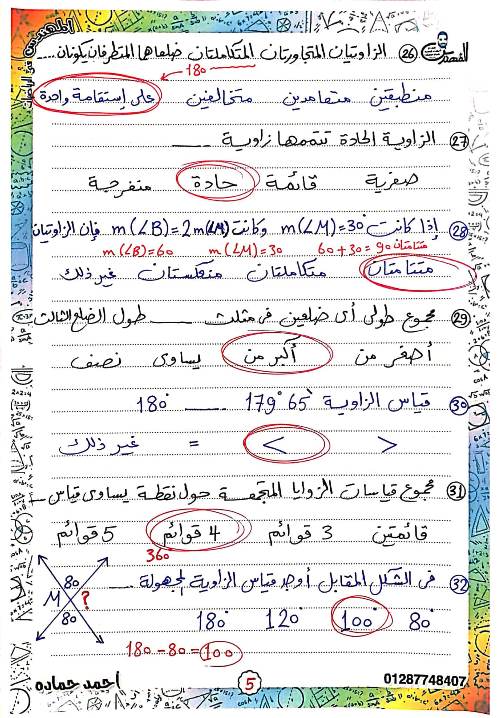 المهندس في الرياضيات
٢٦ الزاويتان المتجاورتان المتكاملتان ضلعاها المتطرفان يكونان....
180
منطبقين متعامدين متخالفين على إستقامة واحدة
٢٧ الزاوية الحادة تتممها زاوية ____
صفرية قائمة حادة منفرجة
٢٨ إذا كانت m(∠M)=30° وكانت m(∠B)=2m(∠M) فإن الزاويتان
m(∠B)=60 m(∠M)=30 60+30=90 متتامتان
متتامتان متكاملتان منعكستان غير ذلك
٢٩ مجموع طولى أى ضلعين فى مثلث ____ طول الضلع الثالث
أصغر من أكبر من يساوى نصف
٣٠ قياس الزاوية 179° 65` ____ 180°
> < = غير ذلك
٣١ مجموع قياسات الزوايا المتجمعة حول نقطة يساوى قياس ــ
قائمتين 3 قوائم 4 قوائم 5 قوائم
360
٣٢ فى الشكل المقابل أوجد قياس الزاوية المجهولة ____
80
M ?
80
80° 100° 120° 180°
180 - 80 = 100
احمد حماده 5 01287748407